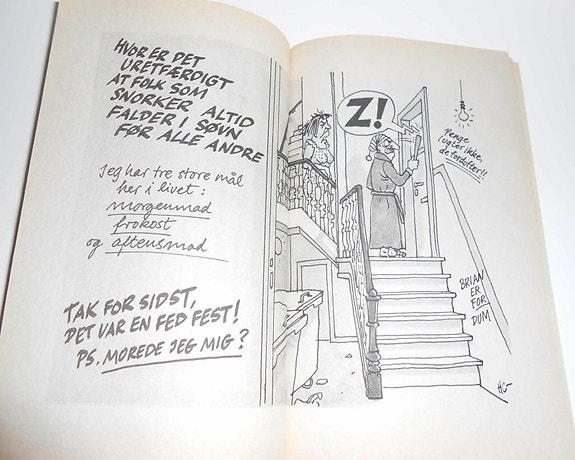 HVOR ER DET
URETFÆRDIGT
AT FOLK SOM
SNORKER ALTID
FALDER I SØVN
FØR ALLE ANDRE
Jeg har tre store mål
her i livet:
morgenmad
frokost
og aftensmad
TAK FOR SIDST,
DET VAR EN FED FEST!
PS. MOREDE JEG MIG?
Z!
Penge
lugter ikke,
de fordufter!!
BRIAN
ER
FOR
DUM
HC